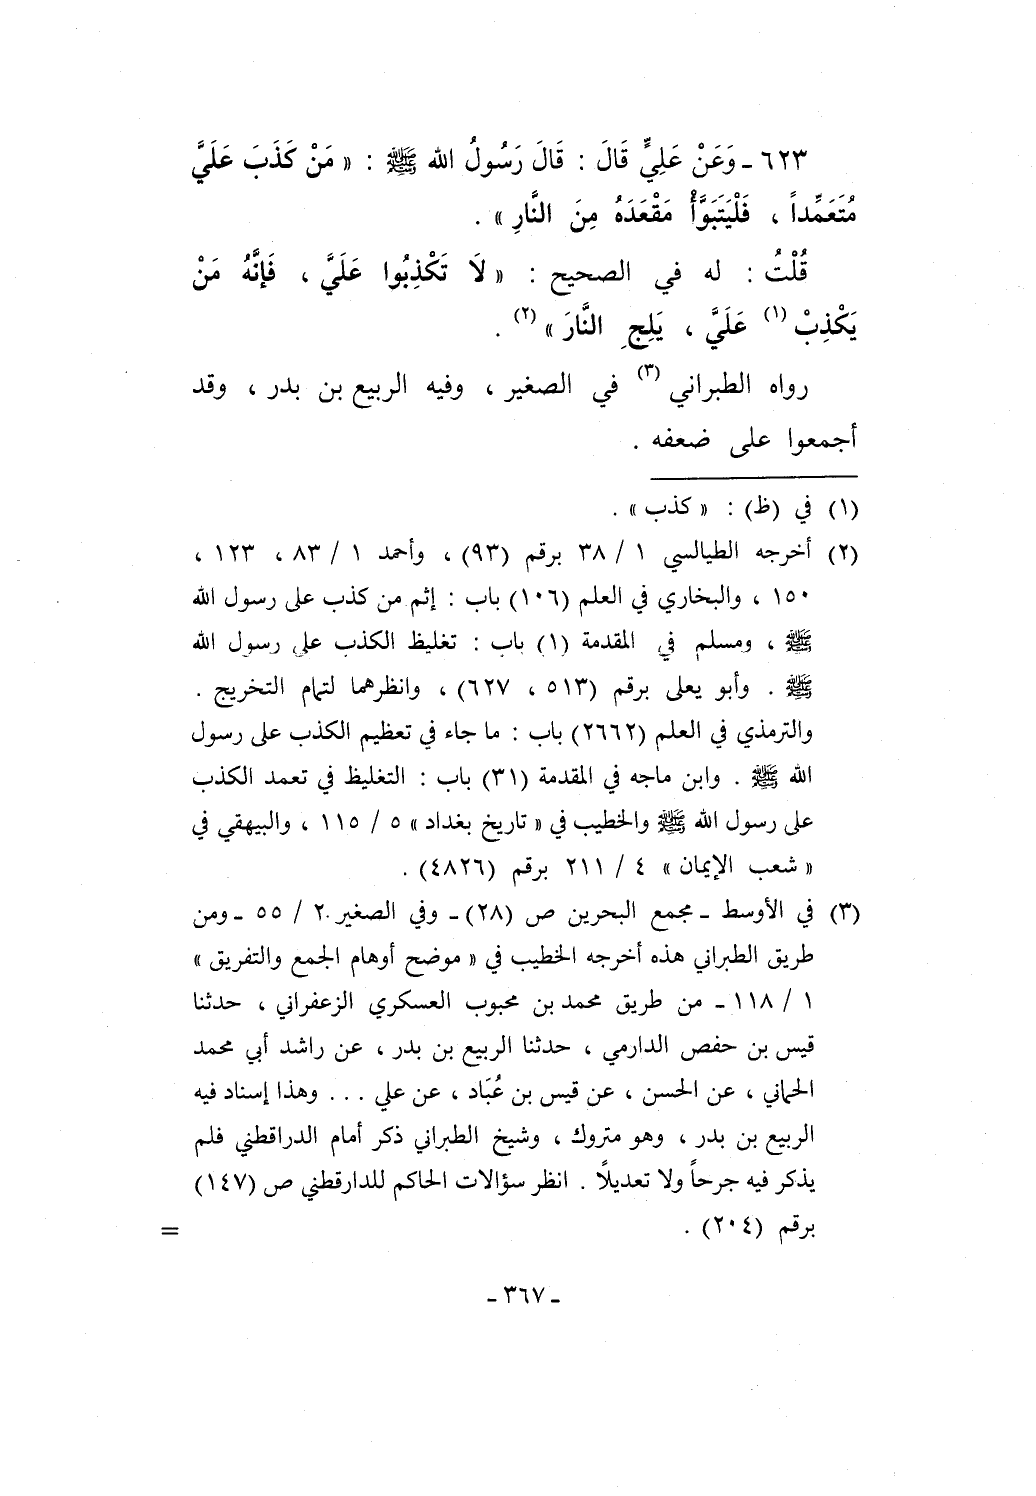 ٦٢٣ - وَعَنْ عَلِيٍّ قَالَ : قَالَ رَسُولُ الله ﷺ : « مَنْ كَذَبَ عَلَيَّ
مُتَعَمِّداً ، فَلْيَتَبَوَّأْ مَقْعَدَهُ مِنَ النَّارِ » .
قُلْتُ : له في الصحيح : « لَا تَكْذِبُوا عَلَيَّ ، فَإِنَّهُ مَنْ
يَكْذِبْ (١) عَلَيَّ ، يَلِجِ النَّارَ » (٢) .
رواه الطبراني (٣) في الصغير ، وفيه الربيع بن بدر ، وقد
أجمعوا على ضعفه .
(١) في (ظ) : « كذب » .
(٢) أخرجه الطيالسي ١ / ٣٨ برقم (٩٣) ، وأحمد ١ / ٨٣ ، ١٢٣ ،
١٥٠ ، والبخاري في العلم (١٠٦) باب : إثم من كذب على رسول الله
ﷺ ، ومسلم في المقدمة (١) باب : تغليظ الكذب على رسول الله
ﷺ . وأبو يعلى برقم (٥١٣ ، ٦٢٧) ، وانظرهما لتمام التخريج .
والترمذي في العلم (٢٦٦٢) باب : ما جاء في تعظيم الكذب على رسول
الله ﷺ . وابن ماجه في المقدمة (٣١) باب : التغليظ في تعمد الكذب
على رسول الله ﷺ والخطيب في « تاريخ بغداد » ٥ / ١١٥ ، والبيهقي في
« شعب الإيمان » ٤ / ٢١١ برقم (٤٨٢٦) .
(٣) في الأوسط - مجمع البحرين ص (٢٨) - وفي الصغير ٢ / ٥٥ - ومن
طريق الطبراني هذه أخرجه الخطيب في « موضح أوهام الجمع والتفريق »
١ / ١١٨ - من طريق محمد بن محبوب العسكري الزعفراني ، حدثنا
قيس بن حفص الدارمي ، حدثنا الربيع بن بدر ، عن راشد أبي محمد
الحماني ، عن الحسن ، عن قيس بن عُبَاد ، عن علي . . . وهذا إسناد فيه
الربيع بن بدر ، وهو متروك ، وشيخ الطبراني ذكر أمام الدراقطني فلم
يذكر فيه جرحاً ولا تعديلاً . انظر سؤالات الحاكم للدارقطني ص (١٤٧)
برقم (٢٠٤) . =
- ٣٦٧ -